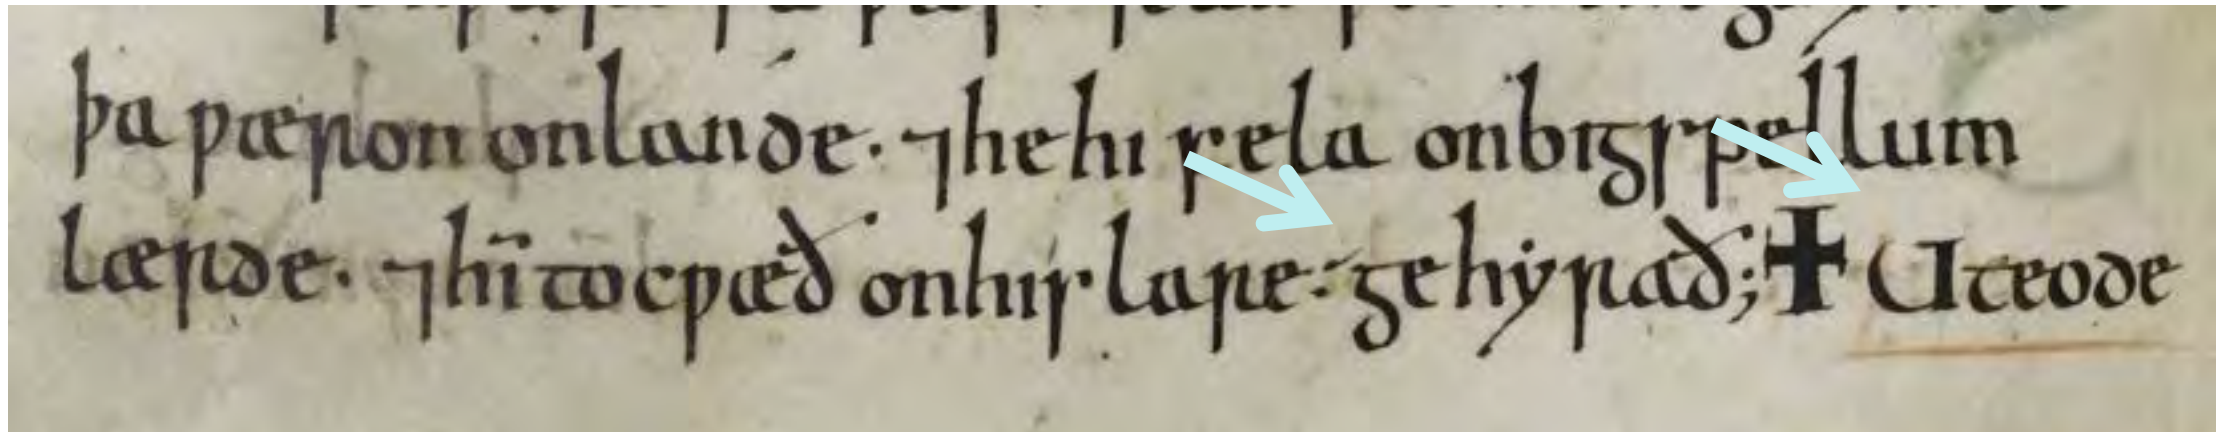 þa ƿæron on lande· ⁊ he hi fela on bigspellum
lærde· ⁊ hī to cƿæð on his lare· gehẏrað; ✝ Ut eode